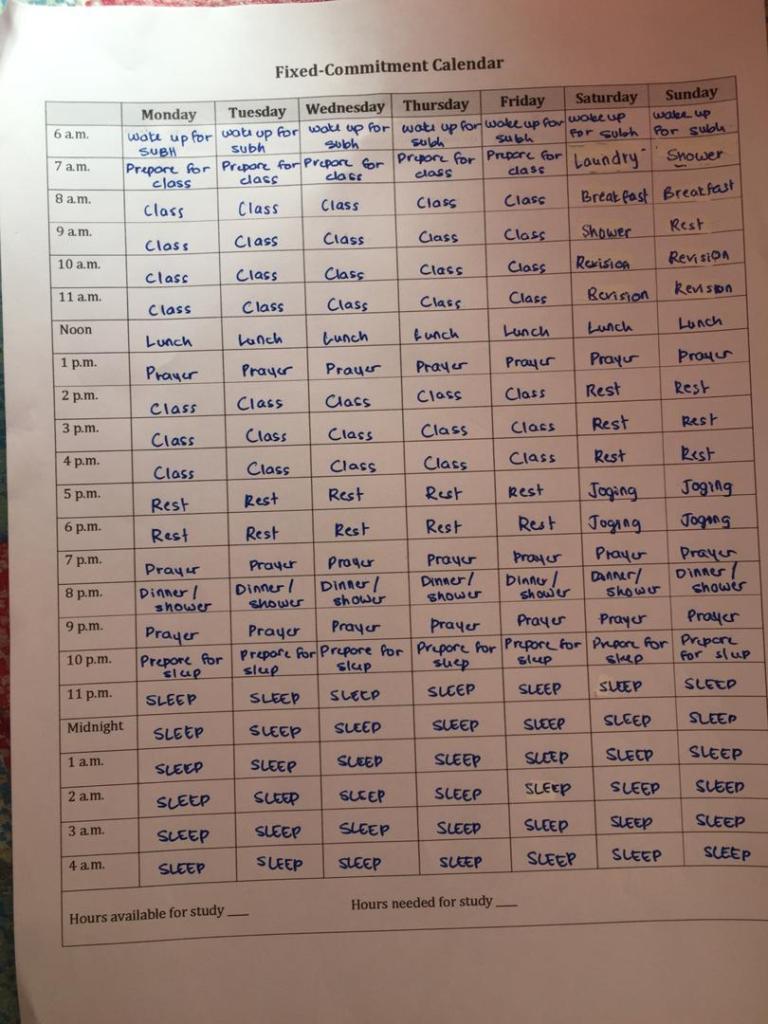 Fixed-Commitment Calendar
Monday Tuesday Wednesday Thursday Friday Saturday Sunday
6 a.m. wake up for SUBH wake up for subh wake up for subh wake up for subh wake up for subh wake up for subh wake up for subh
7 a.m. Prepare for class Prepare for class Prepare for class Prepare for class Prepare for class Laundry Shower
8 a.m. Class Class Class Class Class Breakfast Breakfast
9 a.m. Class Class Class Class Class Shower Rest
10 a.m. Class Class Class Class Class Revision Revision
11 a.m. Class Class Class Class Class Revision Revison
Noon Lunch Lunch Lunch Lunch Lunch Lunch Lunch
1 p.m. Prayer Prayer Prayer Prayer Prayer Prayer Prayer
2 p.m. Class Class Class Class Class Rest Rest
3 p.m. Class Class Class Class Class Rest Rest
4 p.m. Class Class Class Class Class Rest Rest
5 p.m. Rest Rest Rest Rest Rest Joging Joging
6 p.m. Rest Rest Rest Rest Rest Joging Joging
7 p.m. Prayer Prayer Prayer Prayer Prayer Prayer Prayer
8 p.m. Dinner/ shower Dinner/ shower Dinner/ shower Dinner/ shower Dinner/ shower Dinner/ shower Dinner/ shower
9 p.m. Prayer Prayer Prayer Prayer Prayer Prayer Prayer
10 p.m. Prepare for sleep Prepare for sleep Prepare for sleep Prepare for sleep Prepare for sleep Prepare for sleep Prepare for sleep
11 p.m. SLEEP SLEEP SLEEP SLEEP SLEEP SLEEP SLEEP
Midnight SLEEP SLEEP SLEEP SLEEP SLEEP SLEEP SLEEP
1 a.m. SLEEP SLEEP SLEEP SLEEP SLEEP SLEEP SLEEP
2 a.m. SLEEP SLEEP SLEEP SLEEP SLEEP SLEEP SLEEP
3 a.m. SLEEP SLEEP SLEEP SLEEP SLEEP SLEEP SLEEP
4 a.m. SLEEP SLEEP SLEEP SLEEP SLEEP SLEEP SLEEP
Hours available for study ___ Hours needed for study ___